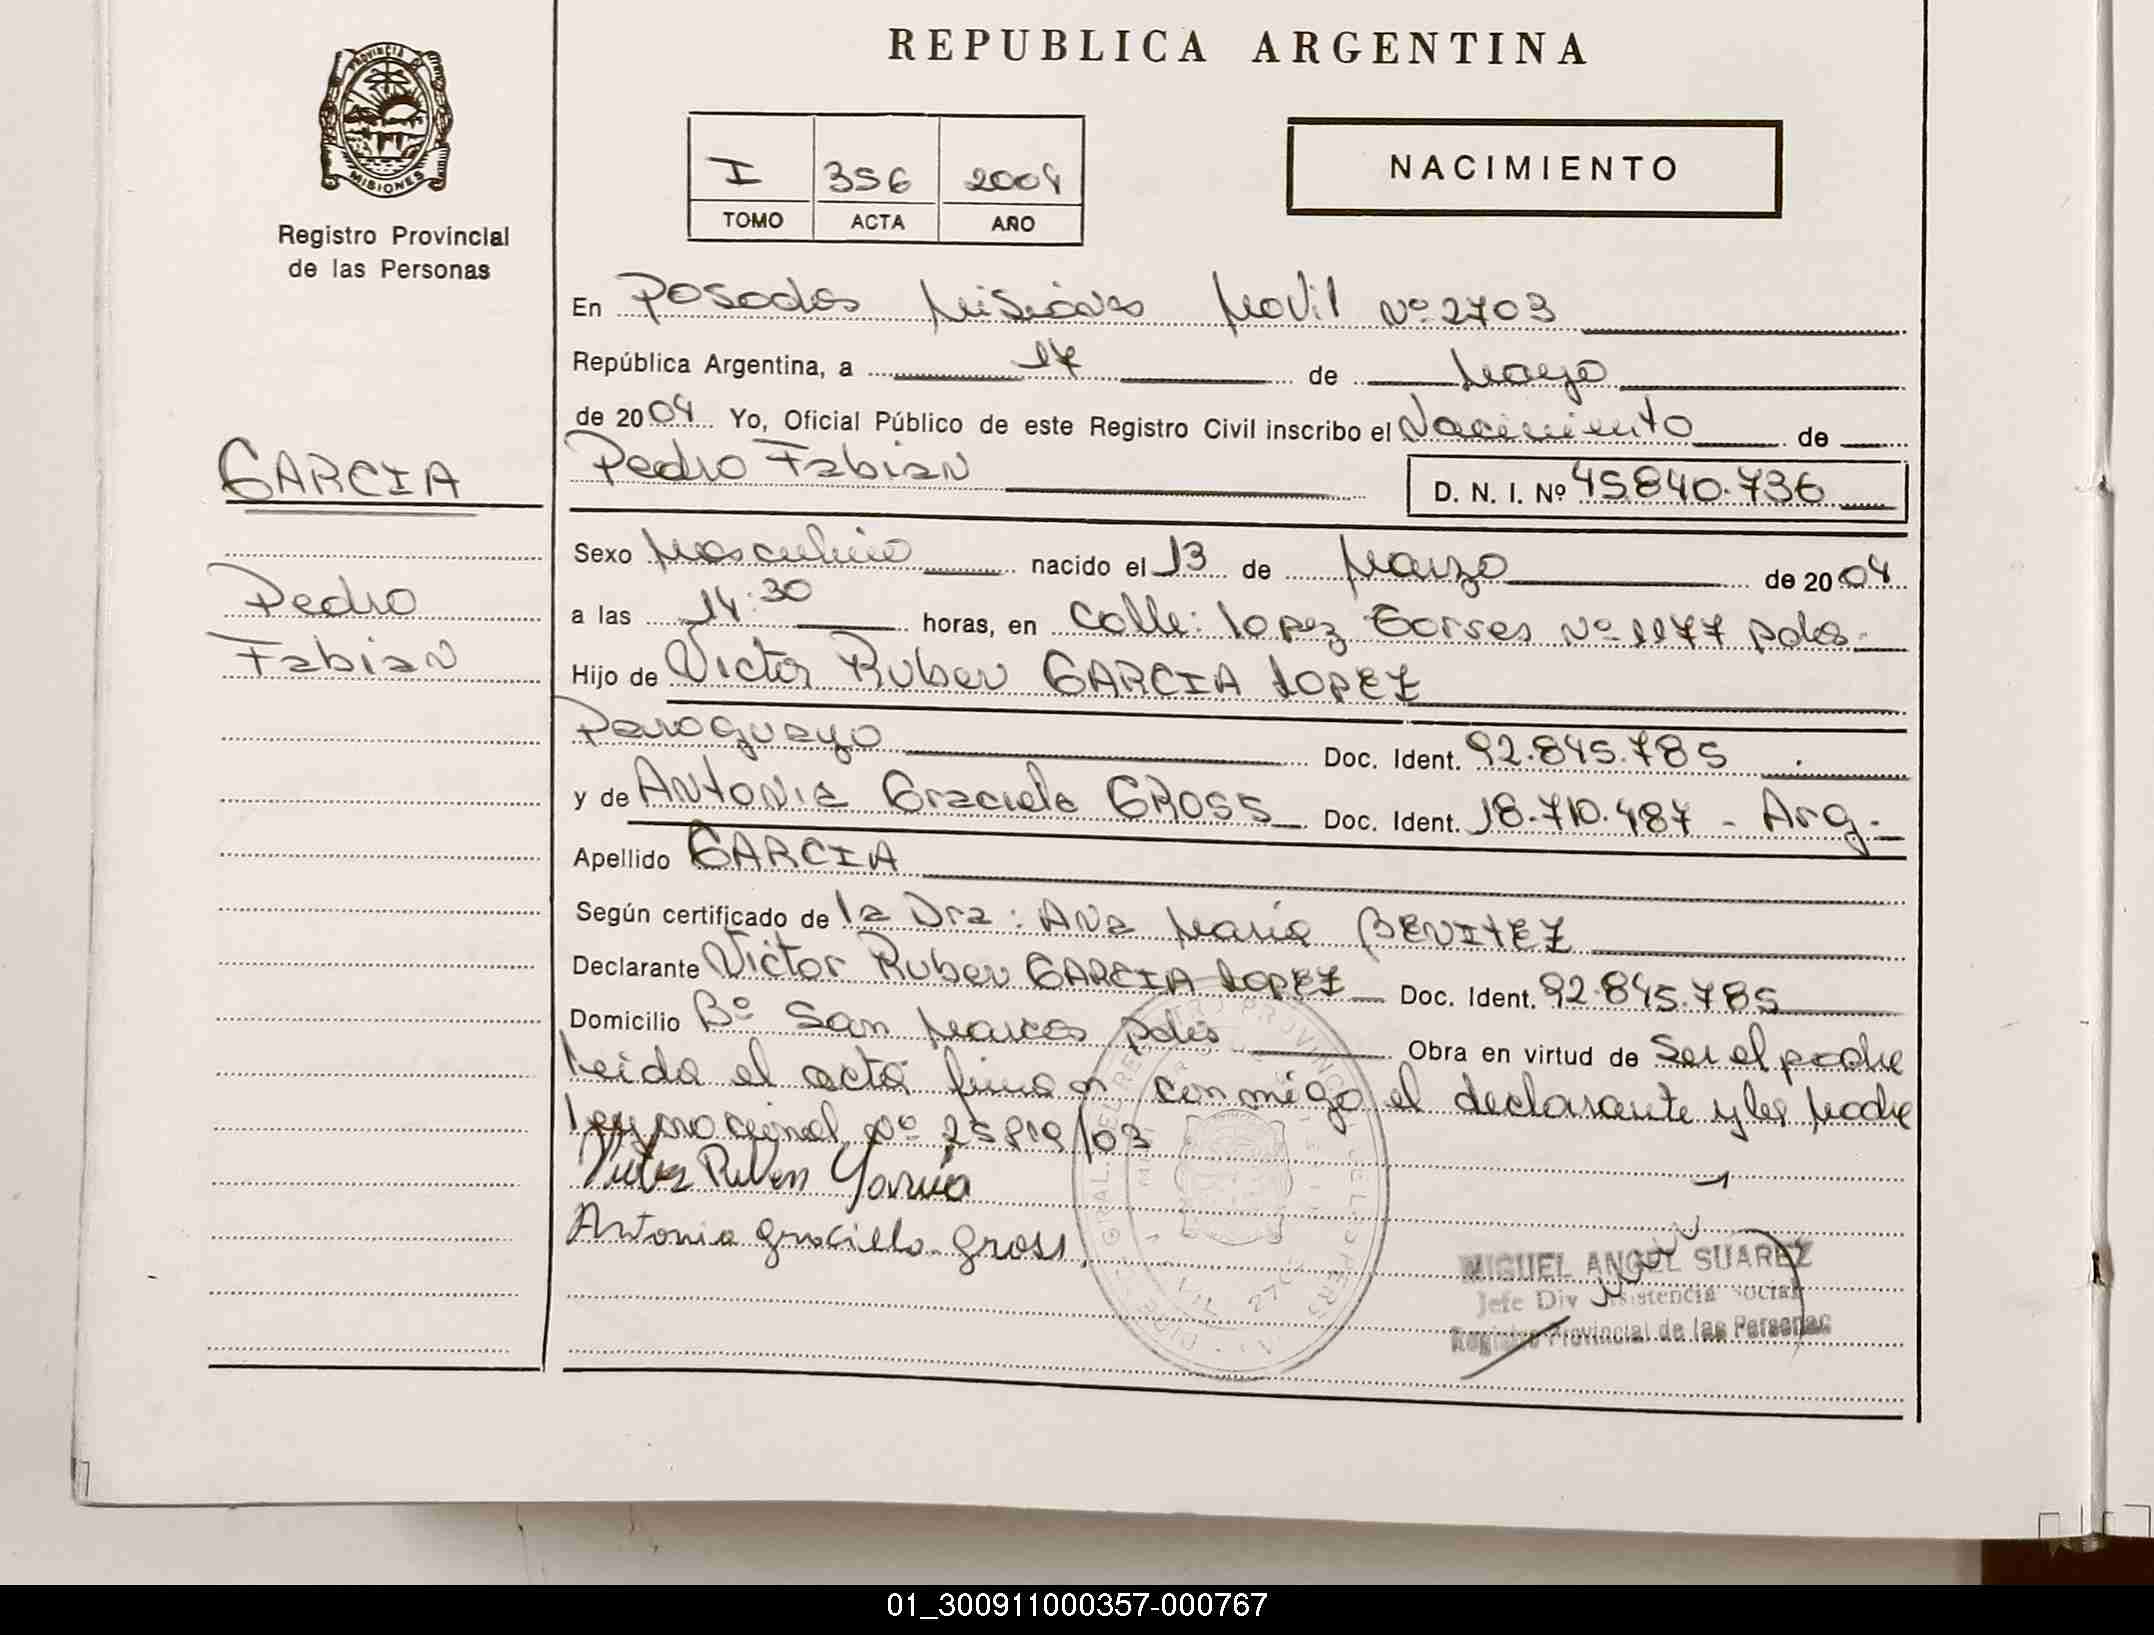 REPUBLICA ARGENTINA
PROVINCIA DE
MISIONES
Registro Provincial
de las Personas
I 356 2004
TOMO ACTA AÑO
NACIMIENTO
En Posadas Misiones Movil Nº 2703
República Argentina, a 17 de Mayo
de 2004 Yo, Oficial Público de este Registro Civil inscribo el Nacimiento de
GARCIA
Pedro Fabian D. N. I. Nº 45840.736
Sexo Masculino nacido el 13 de Marzo de 2004
Pedro
Fabian
a las 14:30 horas, en Calle: Lopez Torres Nº 1177 pdas.
Hijo de Victor Ruben GARCIA LOPEZ
Paraguayo Doc. Ident. 92.845.785
y de Antonia Graciela GROSS Doc. Ident. 18.710.487 - Arg.
Apellido GARCIA
Según certificado de la Dra: Ana Maria BENITEZ
Declarante Victor Ruben GARCIA LOPEZ Doc. Ident. 92.845.785
Domicilio Bº San Marcos pdas Obra en virtud de Ser el padre
Leida el acta firman conmigo el declarante y la Madre
Ley nacional nº 25819/03
Victor Ruben Garcia
Antonia Graciella Gross
MIGUEL ANGEL SUAREZ
Jefe Div Asistencia Social
Registro Provincial de las Personas
01_300911000357-000767